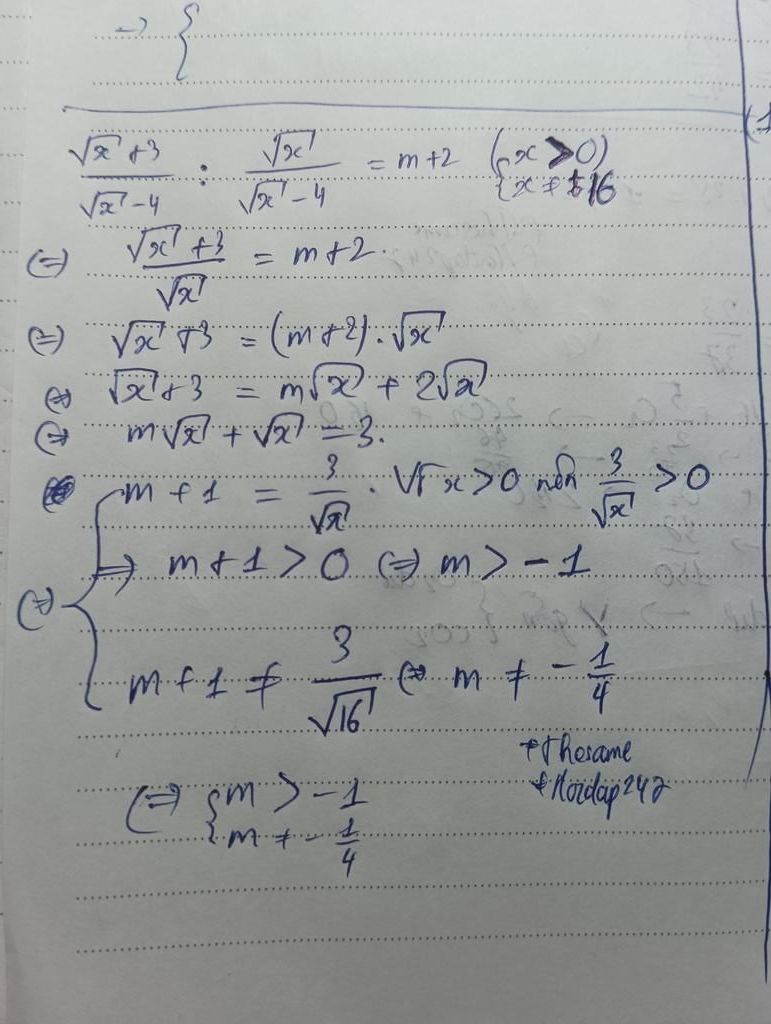 → {
(√x + 3)/(√x - 4) : √x/(√x - 4) = m+2 ({x > 0) x ≠ 16
(=) (√x + 3)/√x = m+2.
(=) √x + 3 = (m+2).√x
(=) √x + 3 = m√x + 2√x
(=) m√x + √x = 3.
(=) { m + 1 = 3/√x . Vì x > 0 nên 3/√x > 0
=) m+1 > 0 (=) m > -1
m + 1 ≠ 3/√16 (=) m ≠ -1/4
+Thesame
+Hoidap247
(=) { m > -1
m ≠ -1/4